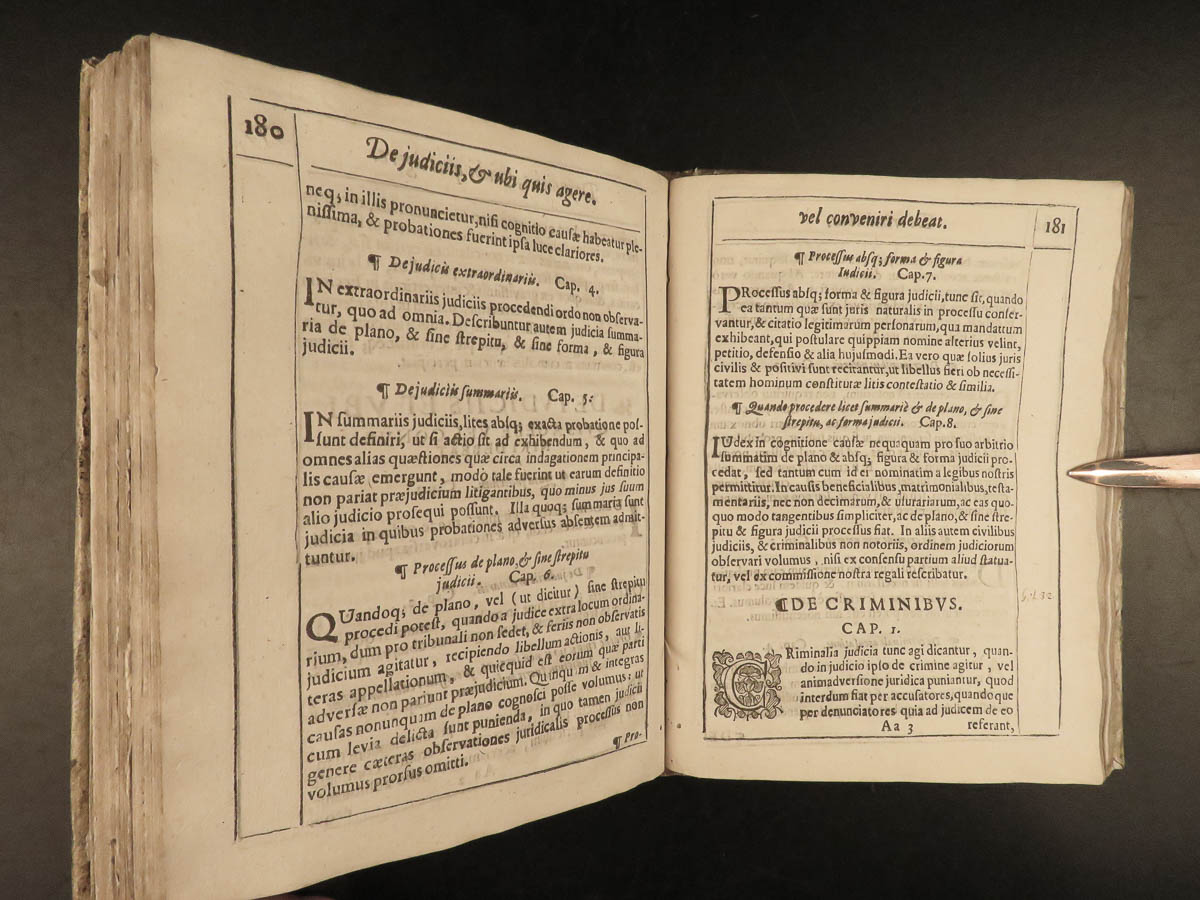 180
De judiciis, & ubi quis agere.
neq; in illis pronuncietur, nisi cognitio causæ habeatur ple-
nissima, & probationes fuerint ipsa luce clariores.
¶ De judiciis extraordinariis. Cap. 4.
IN extraordinariis judiciis procedendi ordo non observa-
tur, quo ad omnia. Describuntur autem judicia summa-
ria de plano, & sine strepitu, & sine forma, & figura
judicii.
¶ De judiciis summariis. Cap. 5:
IN summariis judiciis, lites absq; exacta probatione pos-
sunt definiri, ut si actio sit ad exhibendum, & quo ad
omnes alias quæstiones quæ circa indagationem principa-
lis causæ emergunt, modò tale fuerint ut earum definitio
non pariat præjudicium litigantibus, quo minus jus suum
alio judicio prosequi possunt. Illa quoq; summaria sunt
judicia in quibus probationes adversus absentem admit-
tuntur.
¶ Processus de plano, & sine strepitu
judicii. Cap. 6.
QUandoq; de plano, vel (ut dicitur) sine strepitu
procedi potest, quando a judice extra locum ordina-
rium, dum pro tribunali non sedet, & feriis non observatis
judicium agitatur, recipiendo libellum actionis, aut li-
teras appellationum, & quicquid est eorum quæ parti
adversæ non pariunt præjudicium. Quinquim & integras
causas nonnunquam de plano cognosci posse volumus; ut
cum levia delicta sunt punienda, in quo tamen judicii
genere cæteras observationes juridicalis processus non
volumus prorsus omitti.
¶ Pro-
vel conveniri debeat.
181
¶ Processus absq; forma & figura
Iudicii. Cap. 7.
PRocessus absq; forma & figura judicii, tunc sit, quando
ea tantum quæ sunt juris naturalis in processu conser-
vantur, & citatio legitimarum personarum, qua mandatum
exhibeant, qui postulare quippiam nomine alterius velint,
petitio, defensio & alia hujusmodi. Ea vero quæ solius juris
civilis & positivi sunt recitantur, ut libellus fieri ob necessi-
tatem hominum constituræ litis contestatio & similia.
¶ Quando procedere licet summariè & de plano, & sine
strepitu, ac forma judicii. Cap. 8.
IUdex in cognitione causæ nequaquam pro suo arbitrio
summatim de plano & absq; figura & forma judicii pro-
cedat, sed tantum cum id ei nominatim a legibus nostris
permittitur. In causis beneficialibus, matrimonialibus, testa-
mentariis, nec non decimarum, & usurarum, ac eas quo-
quo modo tangentibus simpliciter, ac de plano, & sine stre-
pitu & figura judicii processus fiat. In aliis autem civilibus
judiciis, & criminalibus non notoriis, ordinem judiciorum
observari volumus, nisi ex consensu partium aliud statua-
tur, vel ex commissione nostra regali rescribatur.
¶DE CRIMINIBVS.
CAP. 1.
CRiminalia judicia tunc agi dicantur, quan-
do in judicio ipso de crimine agitur, vel
animadversione juridica puniantur, quod
interdum fiat per accusatores, quandoque
per denunciatores quia ad judicem de eo
Aa 3 referant,